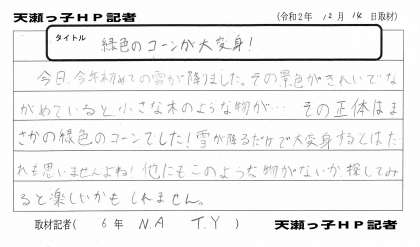 天瀬っ子HP記者 (令和2年 12月 14日取材)
タイトル
緑色のコーンが大変身!
今日、今年初めての雪が降りました。その景色がきれいでな
がめていると小さな木のような物が… その正体はま
さかの緑色のコーンでした!雪が降るだけで大変身するとはだ
れも思いませんよね!他にもこのような物がないか探してみ
ると楽しいかもしれません。
取材記者( 6年 N.A T.Y ) 天瀬っ子HP記者